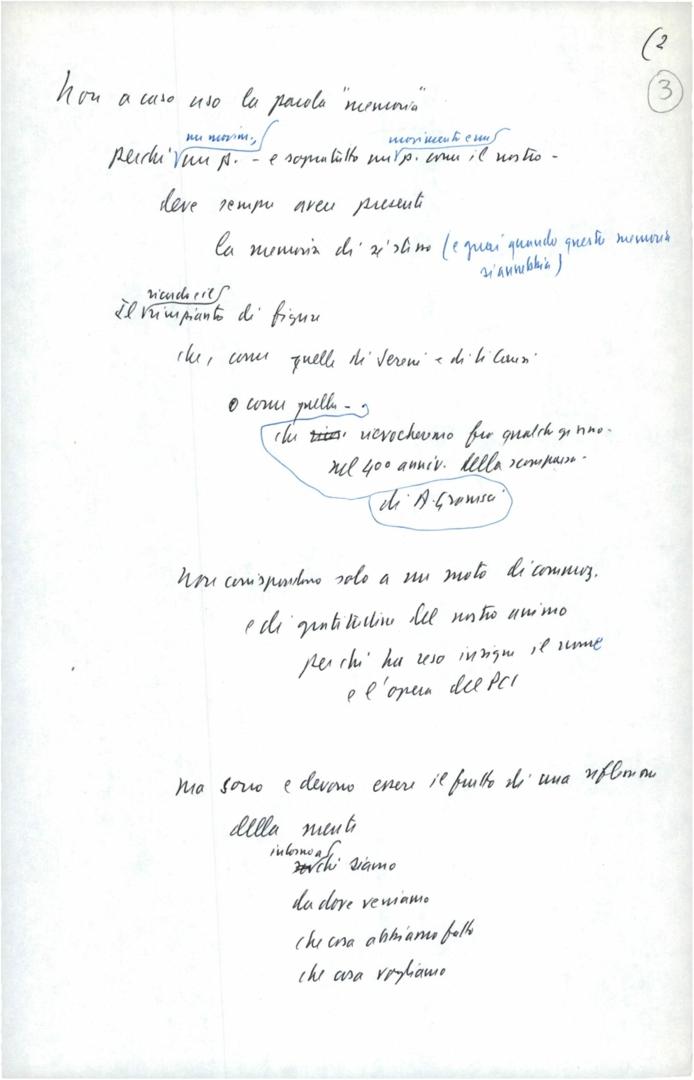 (2
3
Non a caso uso la parola "memoria"
un movim.,
movimento e un
perché un p. - e sopratutto un p. come il nostro -
deve sempre avere presente
la memoria di se stesso (e guai quando questa memoria
si annebbia)
ricordo e il
Il rimpianto di figure
che, come quelle di Sereni e di Li Causi
o come quella -
che rievocheremo fra qualche giorno -
nel 40o anniv. della scomparsa -
di A. Gramsci
Non corrispondono solo a un moto di commoz.
e di gratitudine del nostro animo
perché ha reso insigne il nome
e l'opera del PCI
ma sono e devono essere il frutto di una riflessione
della mente
intorno a
chi siamo
da dove veniamo
che cosa abbiamo fatto
che cosa vogliamo